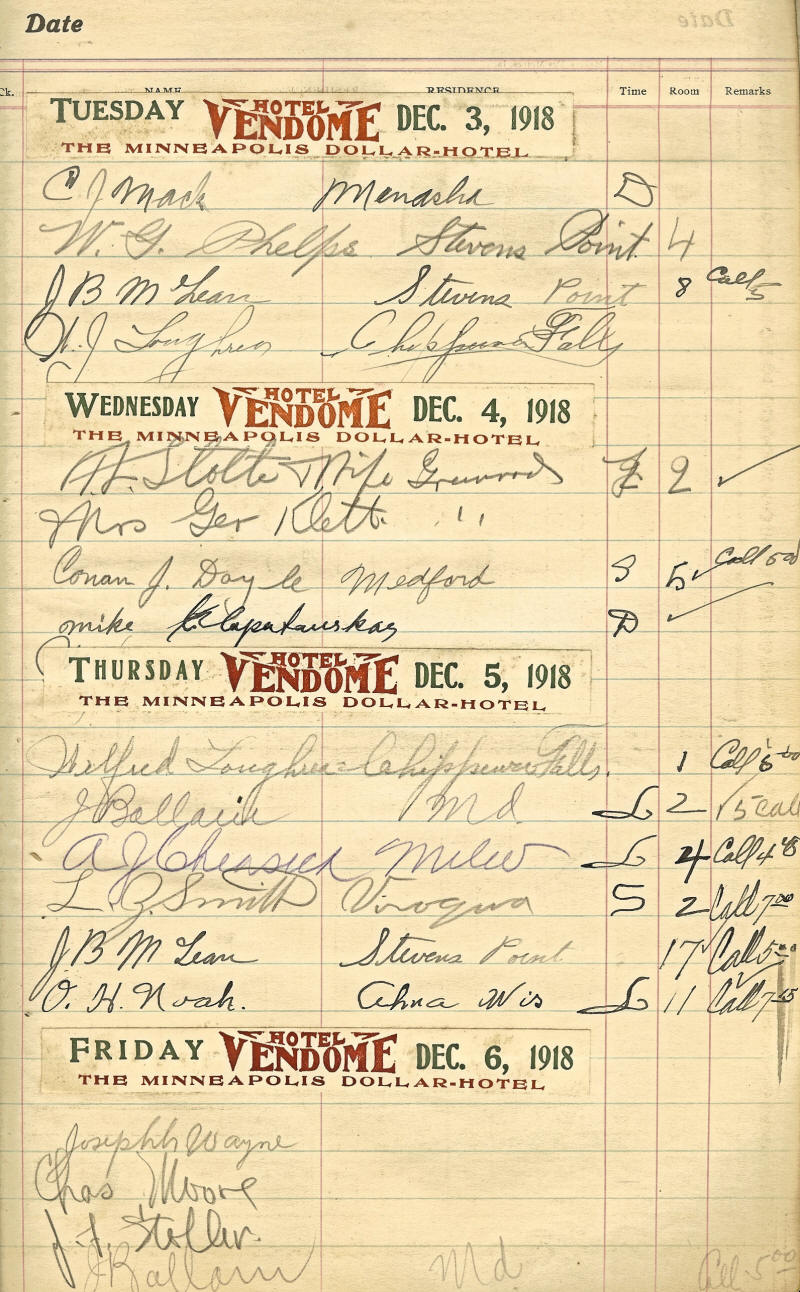 Date
NAME RESIDENCE Time Room Remarks
TUESDAY HOTEL VENDOME DEC. 3, 1918
THE MINNEAPOLIS DOLLAR-HOTEL
C J Mack Menasha D
W. G. Phelps Stevens Point 4
J B McLean Stevens Point 8 Call 5
W. J Loughrea Chippewa Falls
WEDNESDAY HOTEL VENDOME DEC. 4, 1918
THE MINNEAPOLIS DOLLAR-HOTEL
Stolte & Wife Greenwood 2 ✓
Mrs Geo Klett. "
Conan J. Doyle Medford S 5 ✓ Call 500
mike D ✓
THURSDAY HOTEL VENDOME DEC. 5, 1918
THE MINNEAPOLIS DOLLAR-HOTEL
Wilfred Loughrea Chippewa Falls. 1 Call 6 00
J Ballain Md. L 2 5 Call
A J Milw L 4 Call 4 45
L. Z. Smith Viroqua S 2 Call 7 00
J B McLean Stevens Point 17 Call 5 00
O. H. Noah. Wis L 11 Call 7 15
FRIDAY HOTEL VENDOME DEC. 6, 1918
THE MINNEAPOLIS DOLLAR-HOTEL
Josephh Wayne
Chas Moore
J. F. Stoller.
J Ballain Md Call 5 00